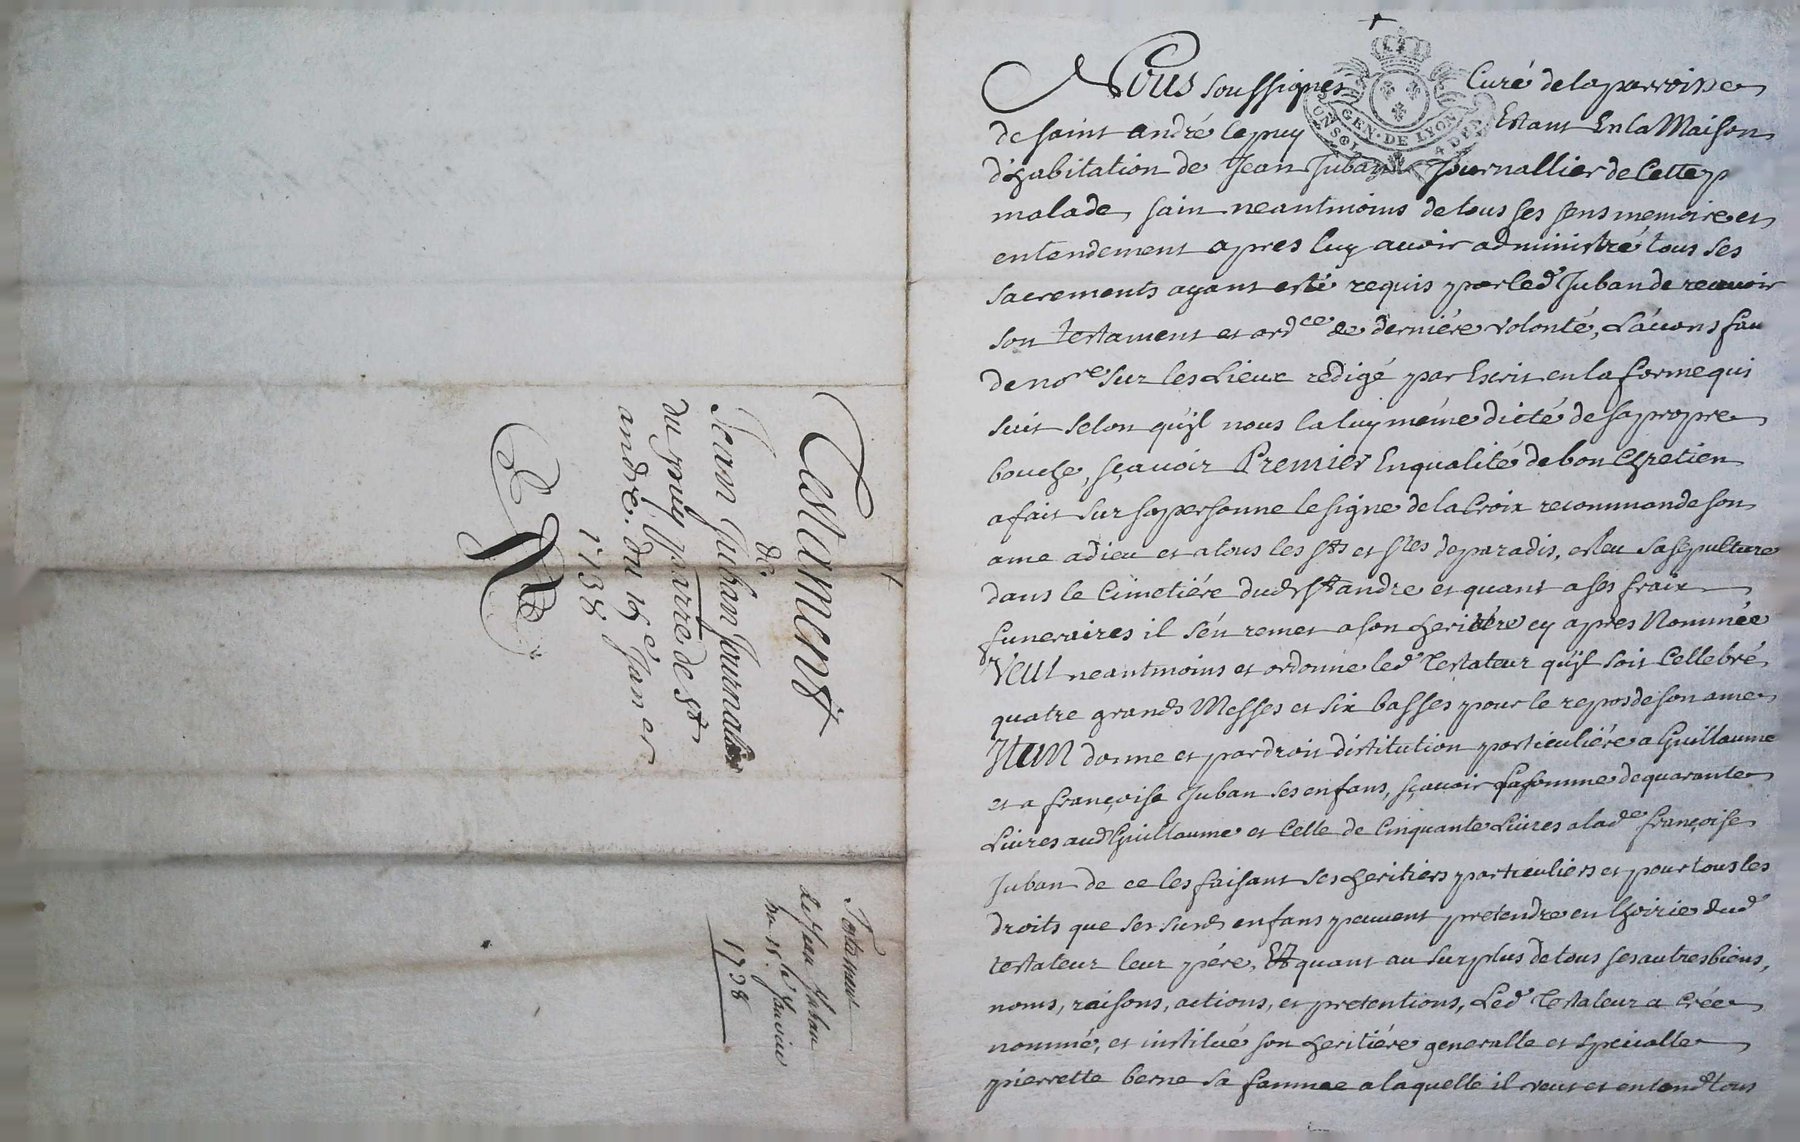 Testament
de
Jean Juban Journalier
du puy parrze de st
andré. du 15e Janer
1738
Testament
de Jean Juban
du 15e Janvier
1738
GEN · DE LYON
Nous soussignes Curé de la parroisse
de saint andré le puy Estant En la Maison
d'habitation de Jean Juban Journallier de Cette p
malade, sain neantmoins de tous ses sens memoire et
entendement apres luy avoir administré tous ses
sacrements ayant esté requis par led Juban de recevoir
son testament et ordce de derniére volonté, L'avons fait
de nore sur les Lieux redigé par Escrit en la forme qui
suit selon qu'jl nous la luy méme dicté de sa propre
bouche, sçavoir Premier En qualité de bon Chretien
a fait sur sa personne le signe de la Croix recommande son
ame a dieu et a tous les sts et stes de paradis, esleu sa sepulture
dans le Cimetiére dud st andre et quant a ses fraix
funeraires il s'en remet a son heritére cy apres Nommée
Veut neantmoins et ordonne led Testateur qu'jl soit Cellebré
quatre grands Messes et six basses pour le repos de son ame
Item donne et par droit d'istitution particuliére a Guillaume
et a françoise Juban ses enfans, sçavoir la somme de quarante
Livres aud Guillaume et Celle de Cinquante Livres a lade françoise
Juban de ce les faisant ses heritiers particuliers et pour tous les
droits que ses susds enfans peuvent pretendre en hoirie dud
testateur leur pére, Et quant au surplus de tous ses autres biens,
noms, raisons, actions, et pretentions, Led Testateur a Crée
nommé, et institué son heritiére generalle et specialle
pierrette berne sa famme a laquelle il veut et entend tous